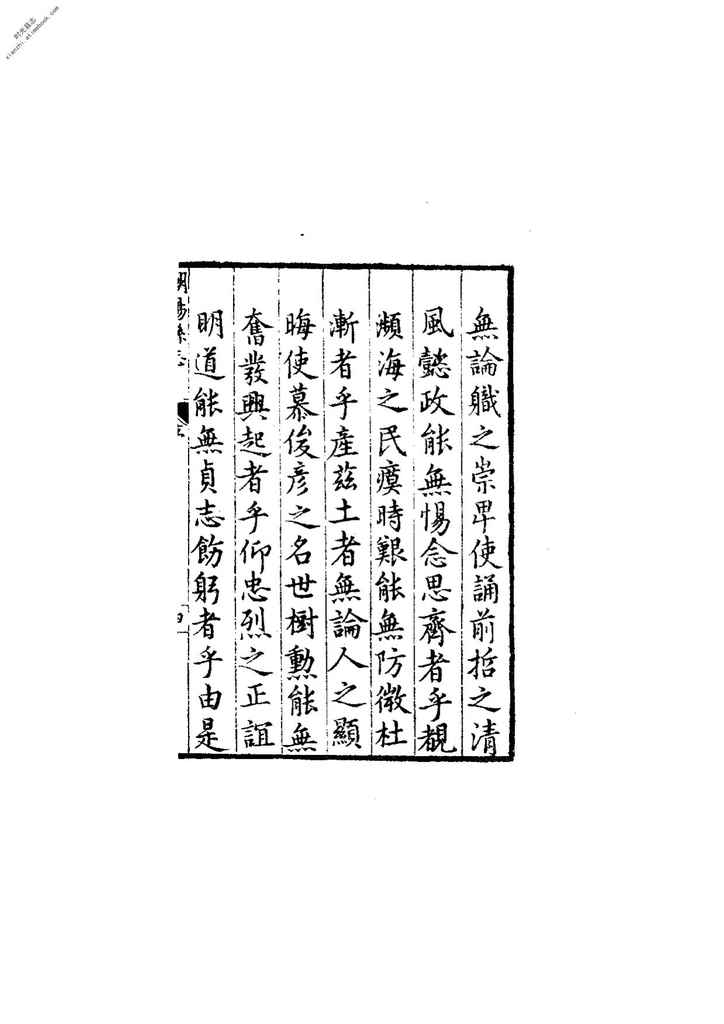 無論職之崇卑使誦前哲之清
風懿政能無惕念思齊者乎覩
瀕海之民瘼時艱能無防微杜
漸者乎產茲土者無論人之顯
晦使慕俊彥之名世樹勳能無
奮發興起者乎仰忠烈之正誼
明道能無貞志飭躬者乎由是
时光县志